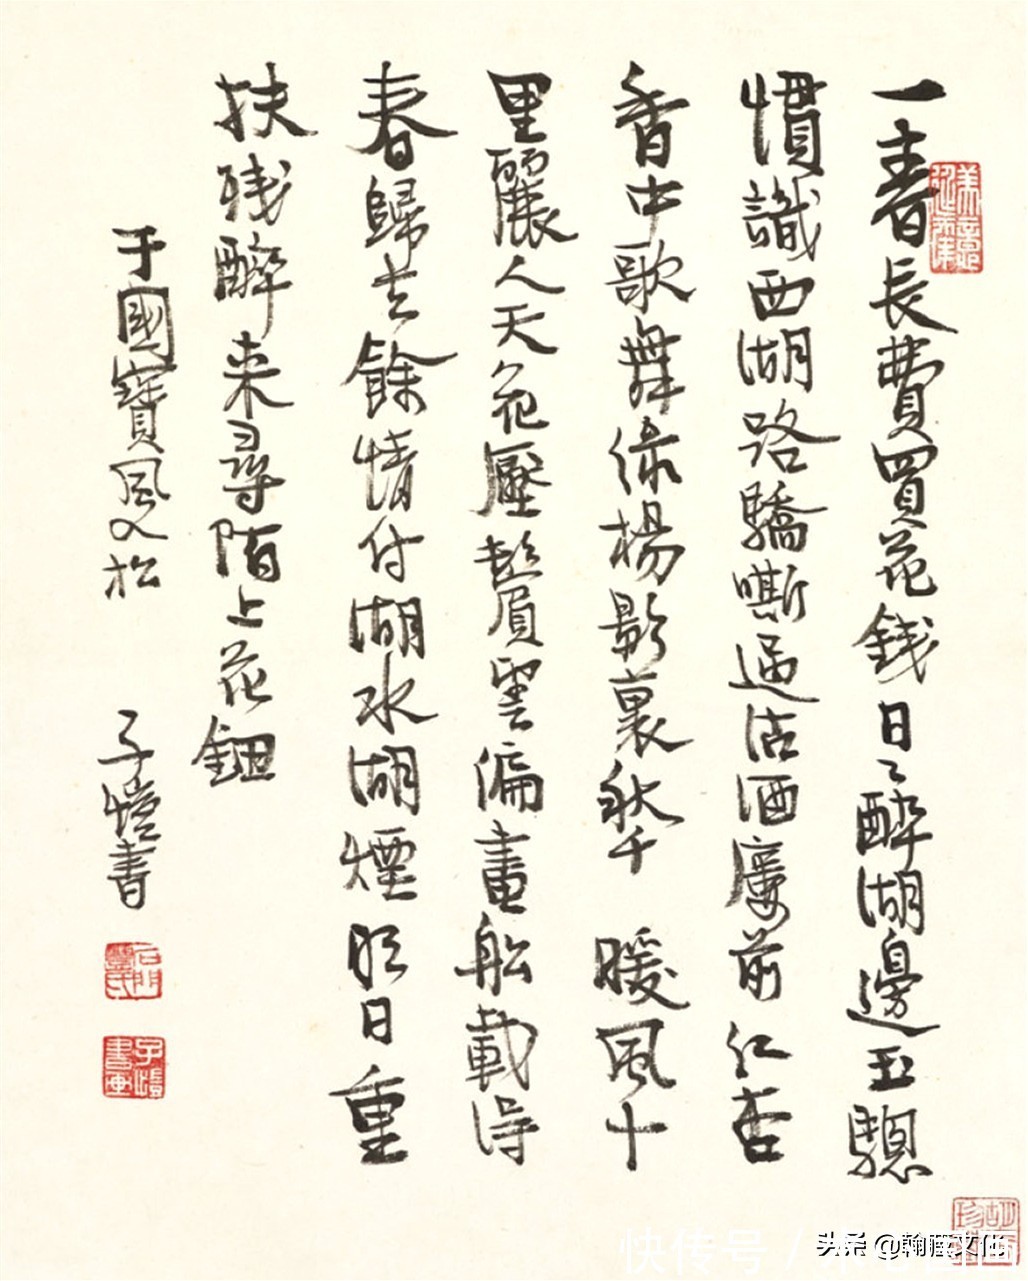 一春長費買花錢日〻醉湖邊玉驄
慣識西湖路驕嘶過沽酒廔前红杏
香中歌舞綠楊影裏秋千暖風十
里麗人天花壓鬢雲偏畫船載得
春歸去餘情付湖水湖煙明日重
扶残醉来尋陌上花鈿
于國寶風入松
子愷書
石門豐氏
子愷書画
快传号/
头条 @翰臧文化